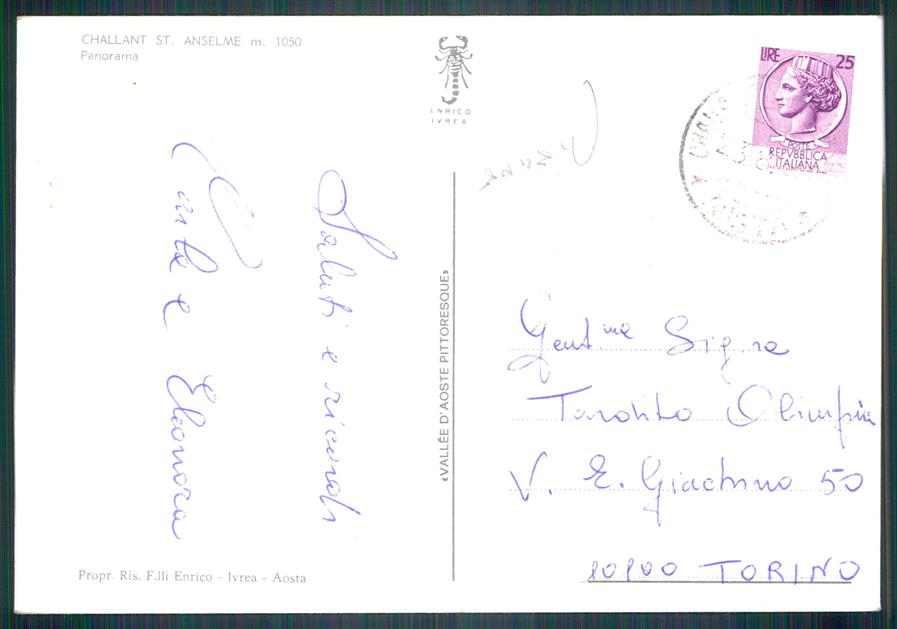 CHALLANT ST. ANSELME m. 1050
Panorama
ENRICO
IVREA
LIRE 25
POSTE
REPVBBLICA
ITALIANA
AOSTA
Saluti e ricordi
Carla e Eleonora
«VALLÉE D'AOSTE PITTORESQUE»
Gent.ma Sig.ra
Olimpia
V. E. Giachino 50
10100 TORINO
Propr. Ris. F.lli Enrico - Ivrea - Aosta